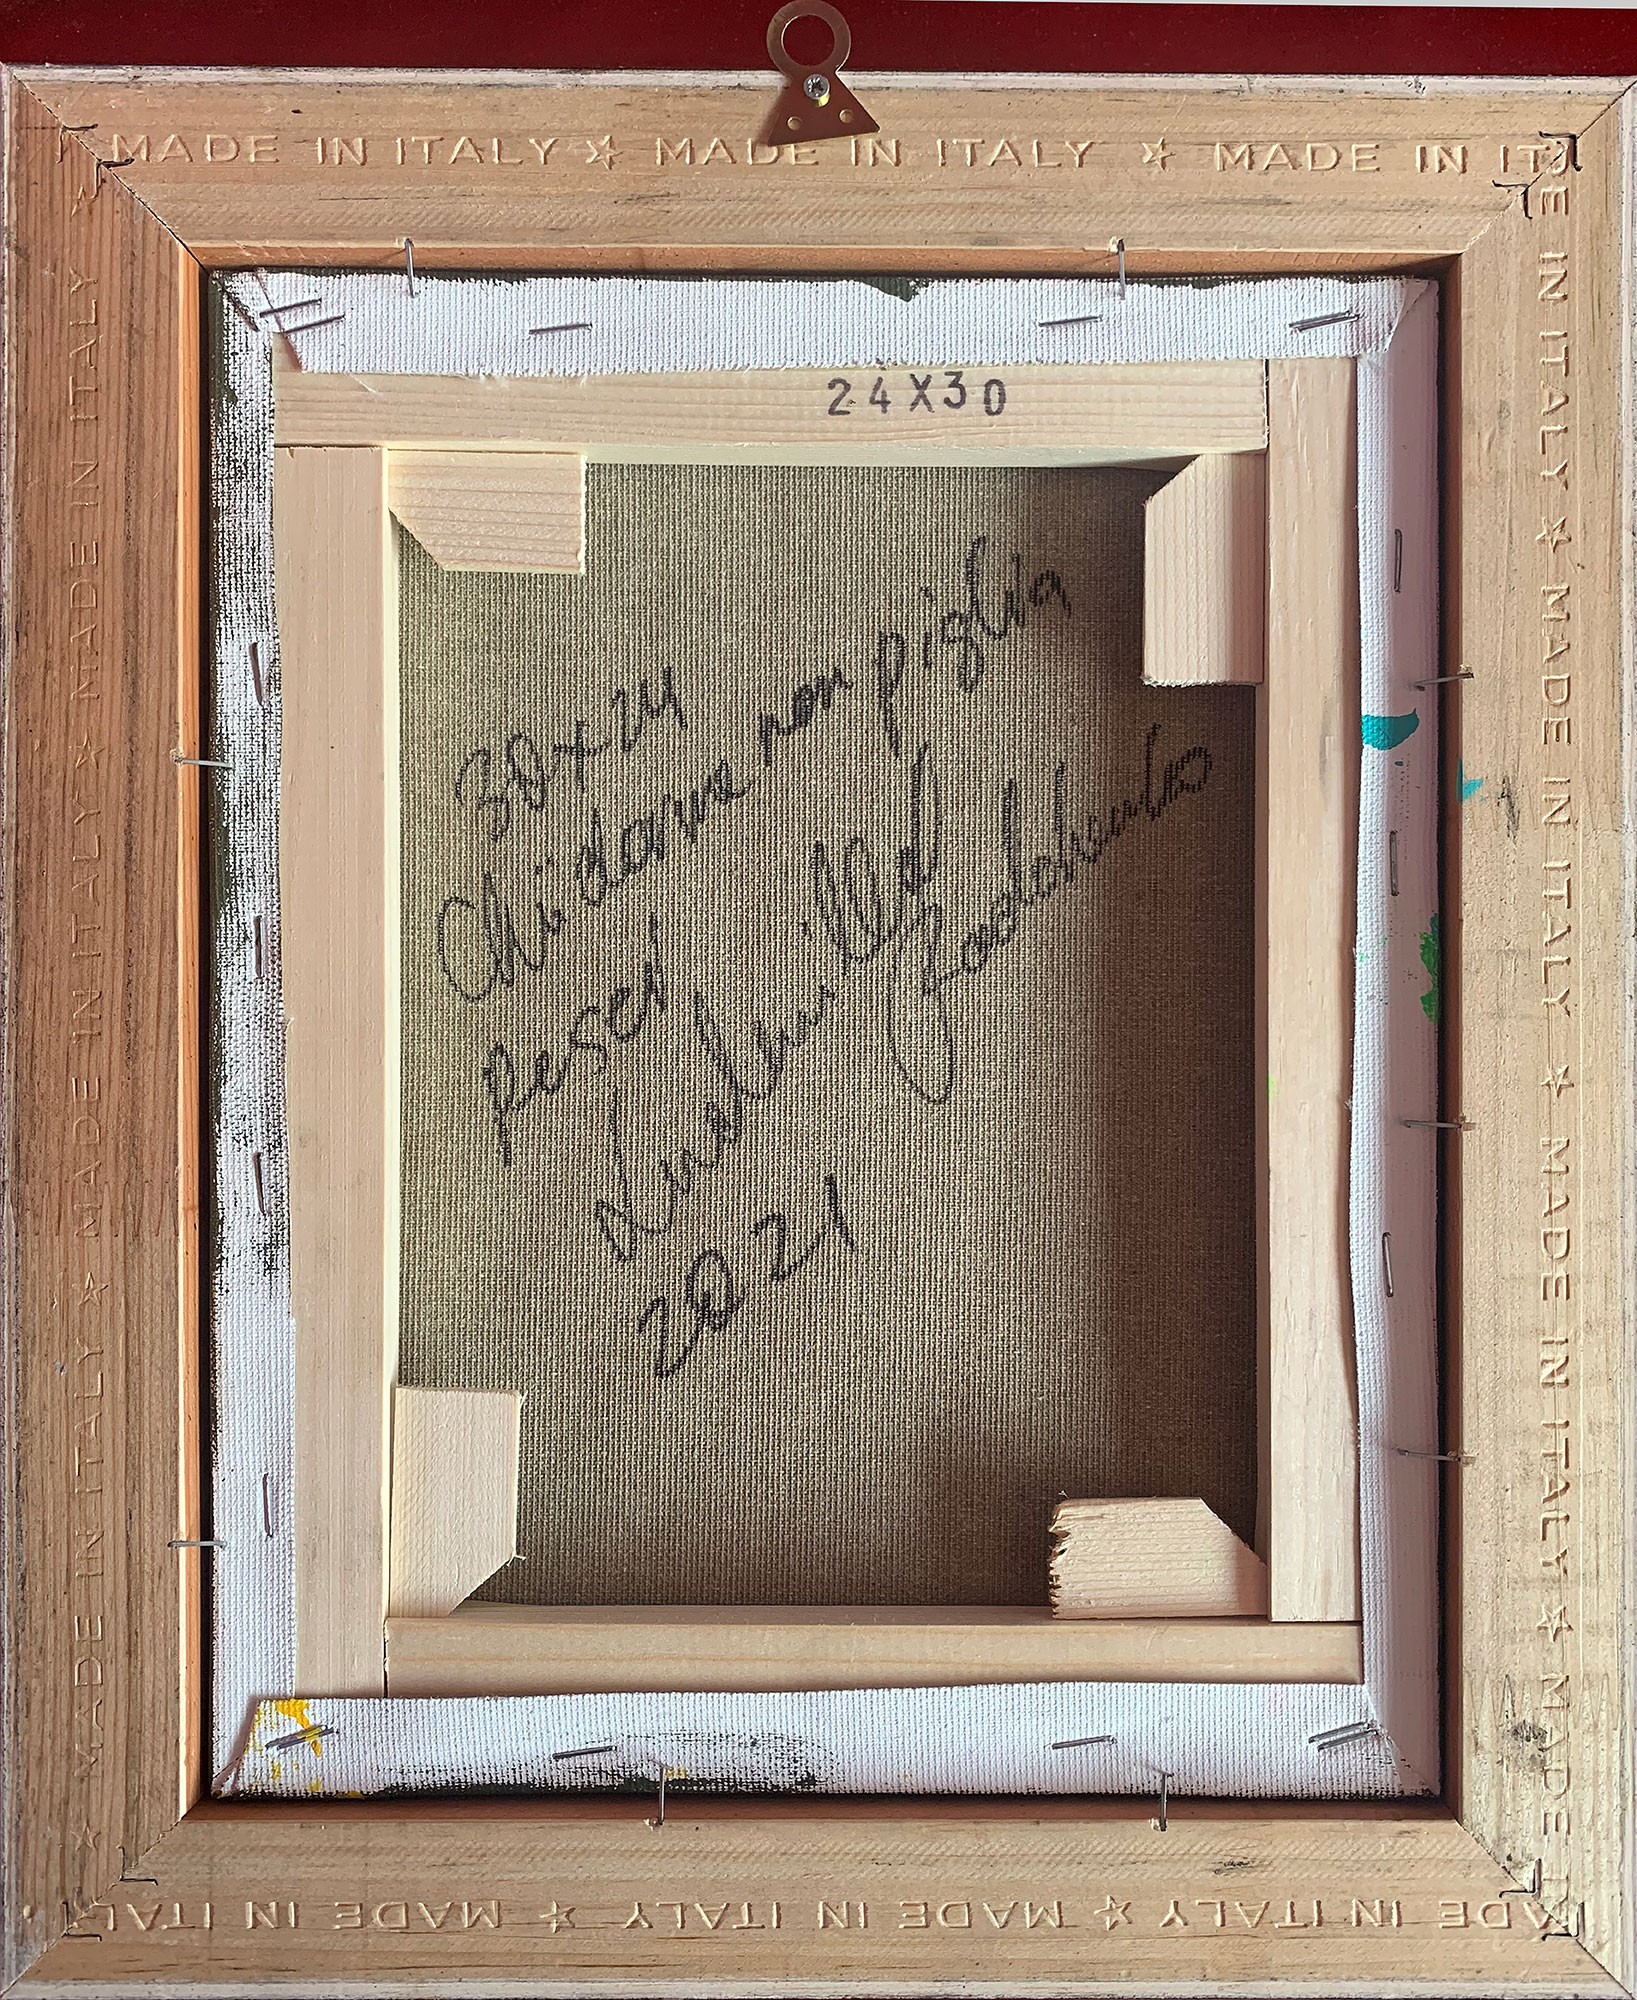 MADE IN ITALY ☆ MADE IN ITALY ☆ MADE IN IT
24X30
30+24
Chi dorme non piglia
pesci
2021
MADE IN ITALY ☆ MADE IN ITALY ☆ MADE IN ITALY ☆ MADE IN ITALY
DE IN ITALY ☆ MADE IN ITALY ☆ MADE IN ITALY ☆ MADE
ADE IN ITALY ☆ MADE IN ITALY ☆ MADE IN ITAL